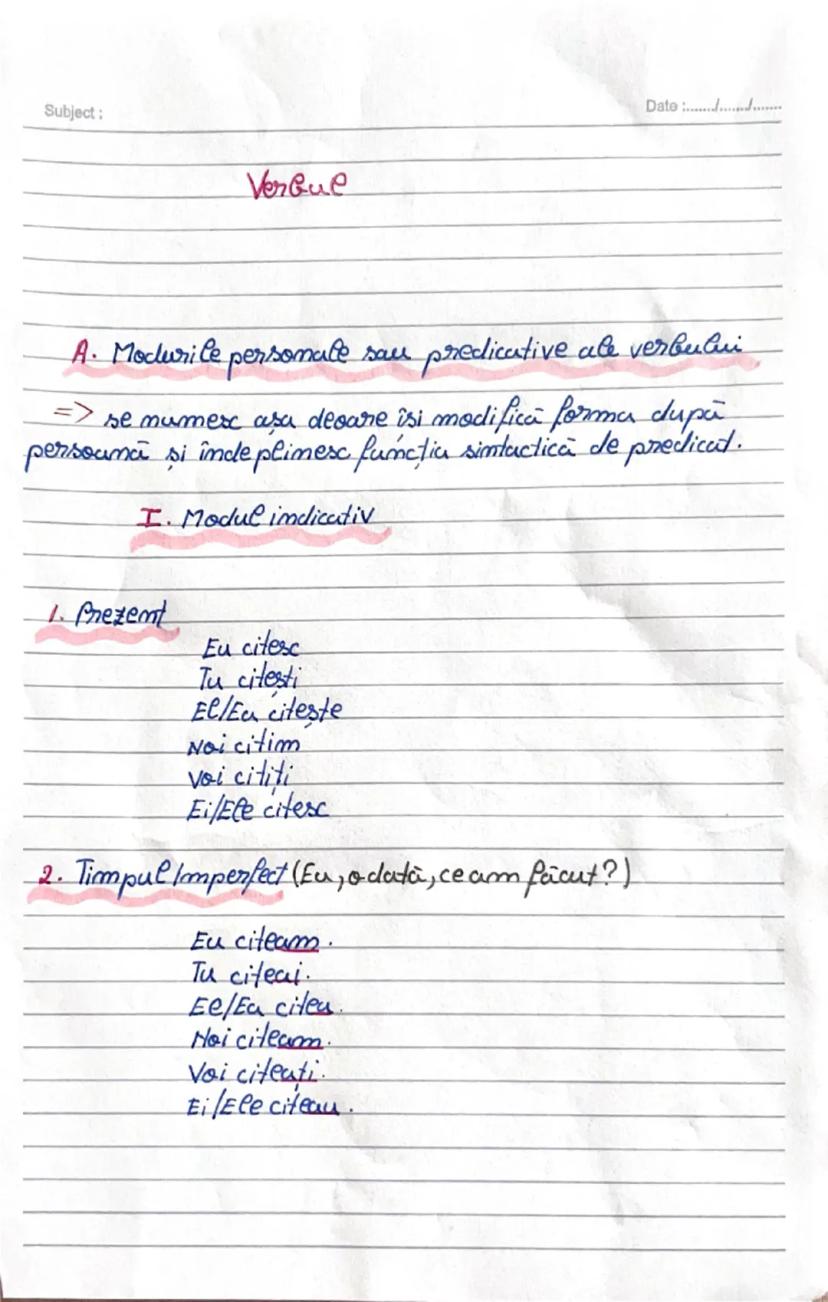 Subject :
Date :......./......./.......
Verbul
A. Modurile personale sau predicative ale verbului
=> se numesc așa deoare își modifică forma după
persoană și îndeplinesc funcția sintactică de predicat.
I. Modul indicativ
1. Prezent
Eu citesc
Tu citești
El/Ea citește
Noi citim
Voi citiți
Ei/Ele citesc
2. Timpul Imperfect (Eu, odată, ce am făcut?)
Eu citeam.
Tu citeai.
El/Ea citea.
Noi citeam.
Voi citeați.
Ei/Ele citeau.